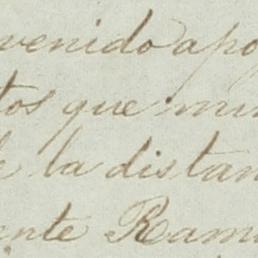 venido apo
tos que mu
e la distan
ente Ram